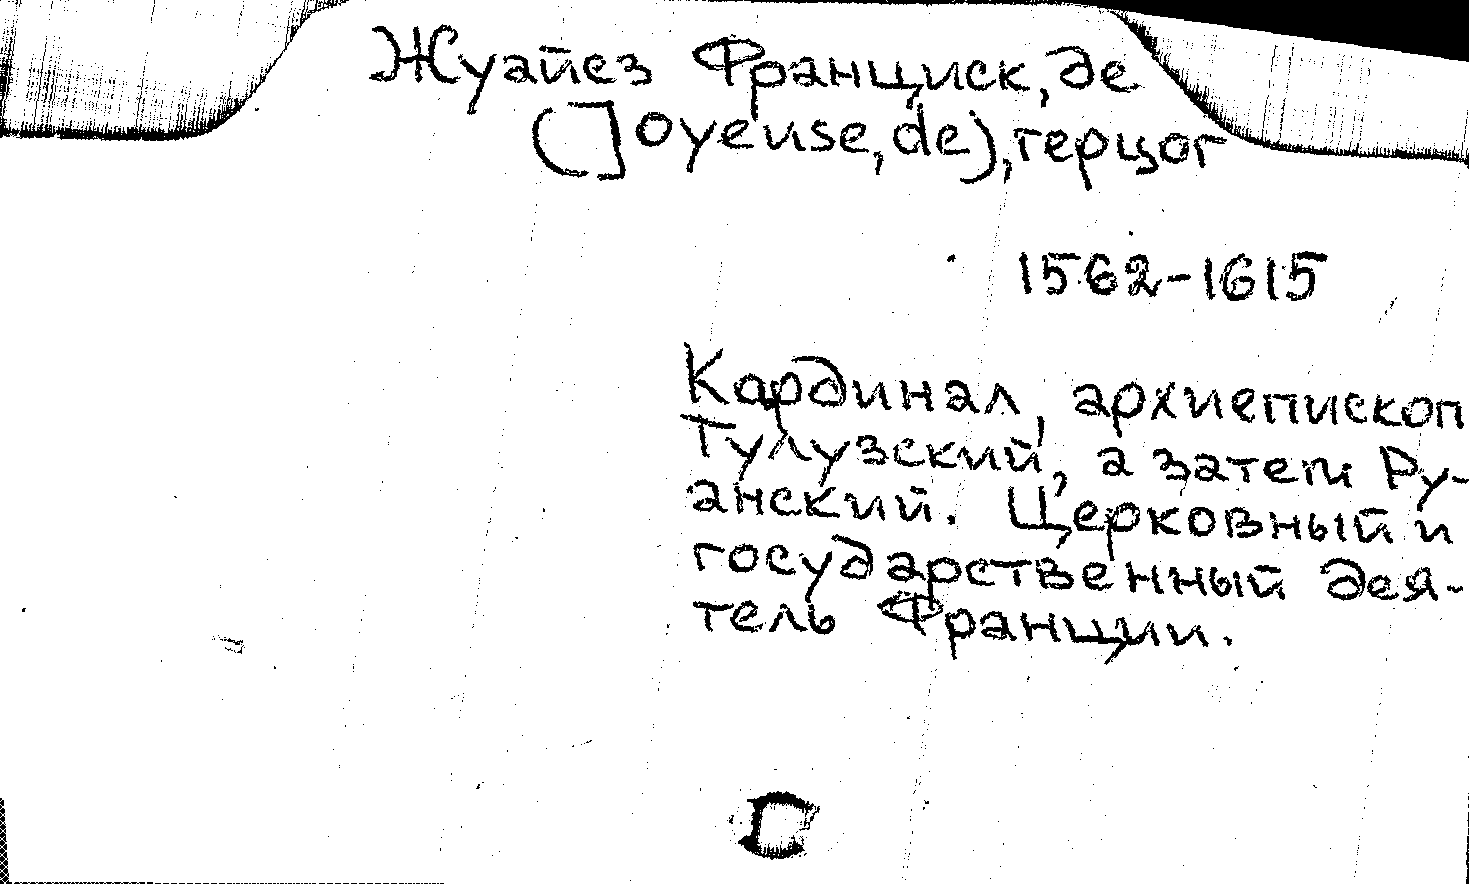 Жуайез Франциск, де
(Joyeuse, de), герцог
1562-1615
Кардинал, архиепископ
Тулузский, а затем Ру-
анский. Церковный и
государственный дея-
тель Франции.